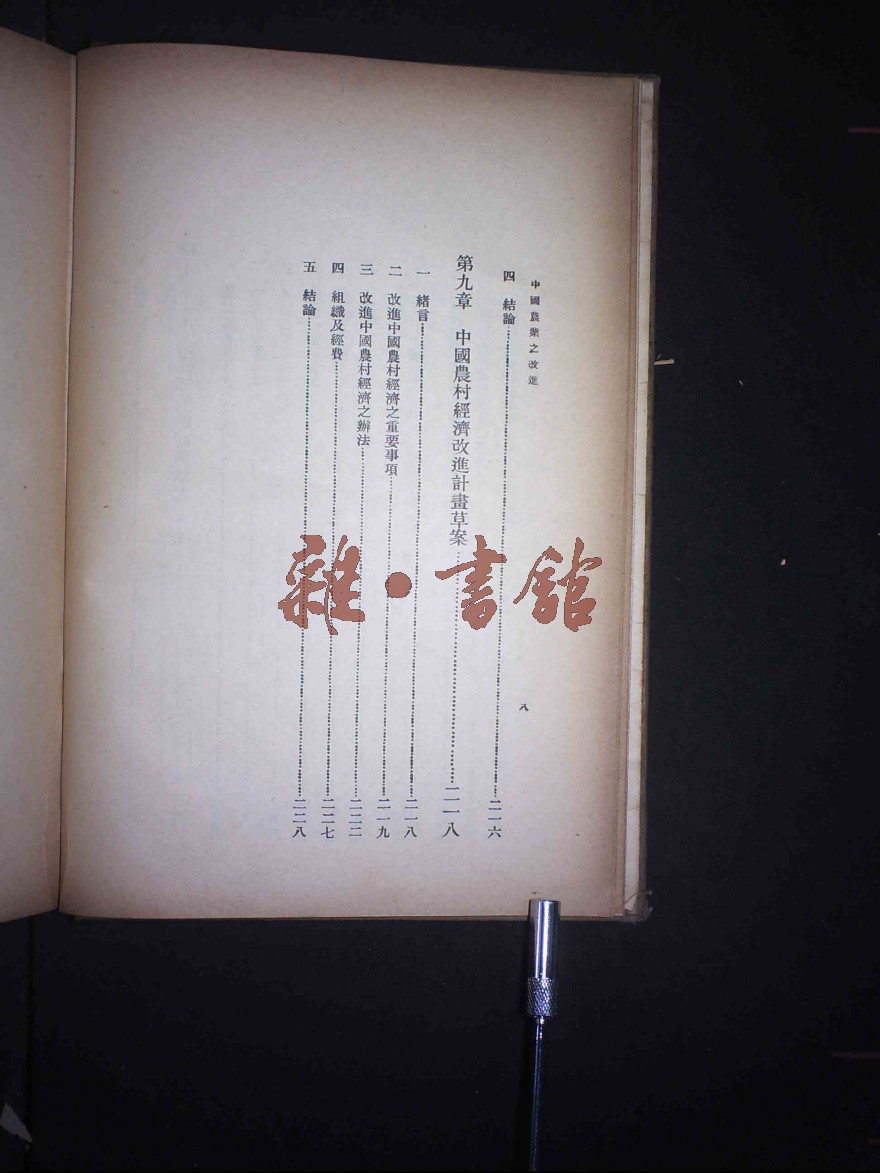 中國農業之改進
八
四　結論……二一六
第九章　中國農村經濟改進計畫草案……二一八
一　緒言……二一八
二　改進中國農村經濟之重要事項……二一九
三　改進中國農村經濟之辦法……二二二
四　組織及經費……二二七
五　結論……二二八
雜·書館